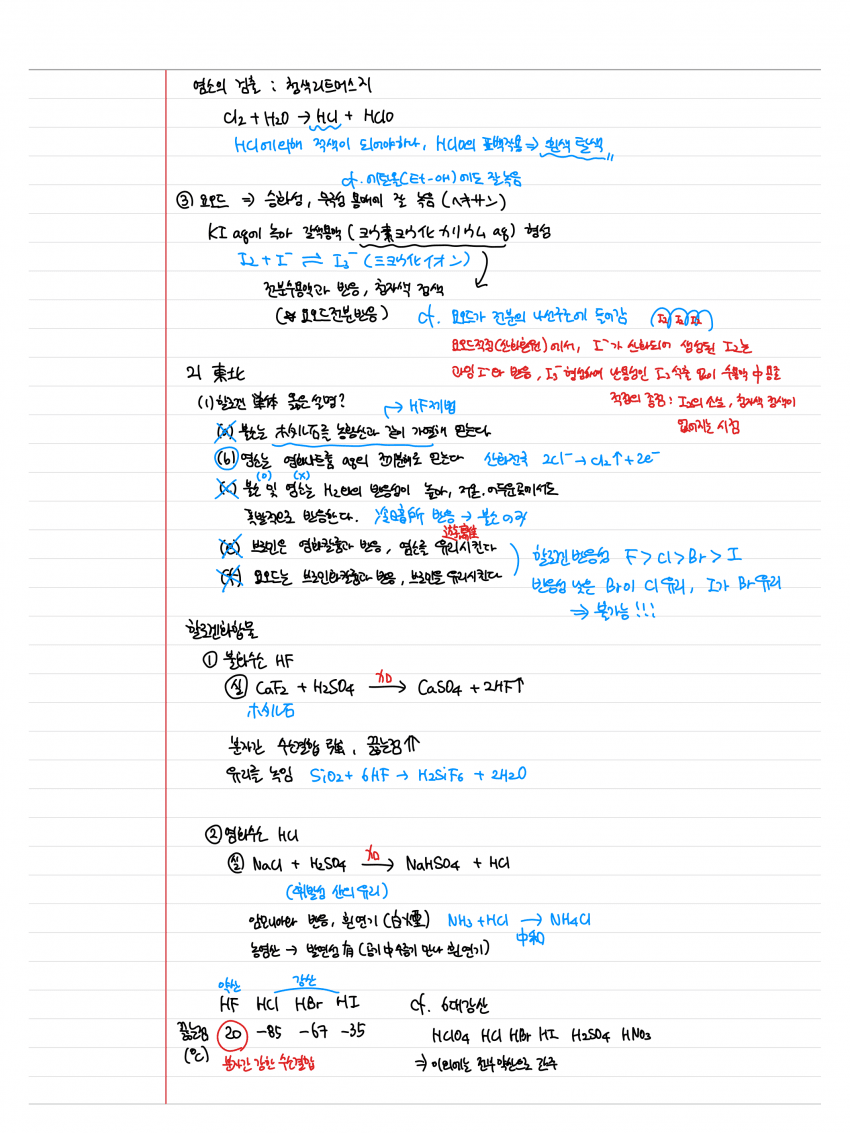 염소의 검출 : 청색리트머스지
Cl2 + H2O → HCl + HClO
HCl에 의해 적색이 되어야하나, HClO의 표백작용 ⇒ 흰색 탈색
cf. 에탄올(Et-OH)에도 잘 녹음
③ 요오드 ⇒ 승화성, 무극성 용매에 잘 녹음 (ヘキサン)
KI aq에 녹아 갈색용액 (ヨウ素ヨウ化カリウム aq) 형성
I2 + I⁻ ⇌ I3⁻ (三ヨウ化イオン)
전분수용액과 반응, 청자색 검색
(☆ 요오드전분반응)
cf. 요오드가 전분의 나선구조에 들어감
I2 I2 I2
요오드적정(산화환원)에서, I⁻가 산화되어 생성된 I2는
과잉 I⁻와 반응, I3⁻ 형성하여 난용성인 I2 석출 없이 수용액 中 공존
적정의 종점 : I2의 소실, 청자색 정색이
없어지는 시점
21 東北
(1) 할로겐 単体 옳은 설명?
→ HF 제법
(a) 불소는 ホタル石를 농황산과 같이 가열해 얻는다
(b) 염소는 염화나트륨 aq의 전기분해로 얻는다 산화전극 2Cl⁻ → Cl2↑ + 2e⁻
(o) (x)
(c) 불소 및 염소는 H2와의 반응성이 높아, 저온·어두운곳에서도
폭발적으로 반응한다. 冷暗所 반응 → 불소 only
遊離
(e) 브로민은 염화칼륨과 반응, 염소를 유리시킨다
(f) 요오드는 브로민화칼륨과 반응, 브로민을 유리시킨다
할로겐 반응성 F > Cl > Br > I
반응성 낮은 Br이 Cl 유리, I가 Br 유리
⇒ 불가능!!!
할로겐화합물
① 불화수소 HF
실 CaF2 + H2SO4 → CaSO4 + 2HF↑
ホタル石
분자간 수소결합 強, 끓는점 ⇑
유리를 녹임 SiO2 + 6HF → H2SiF6 + 2H2O
② 염화수소 HCl
실 NaCl + H2SO4 → NaHSO4 + HCl
(휘발성 산의 유리)
암모니아와 반응, 흰연기 (白煙) NH3 + HCl → NH4Cl
中和
농염산 → 발연성 有 (공기 中 수증기 만나 흰연기)
약산 강산
HF HCl HBr HI cf. 6대강산
끓는점 20 -85 -67 -35 HClO4 HCl HBr HI H2SO4 HNO3
(℃) 분자간 강한 수소결합 ⇒ 이외에는 전부 약산으로 간주